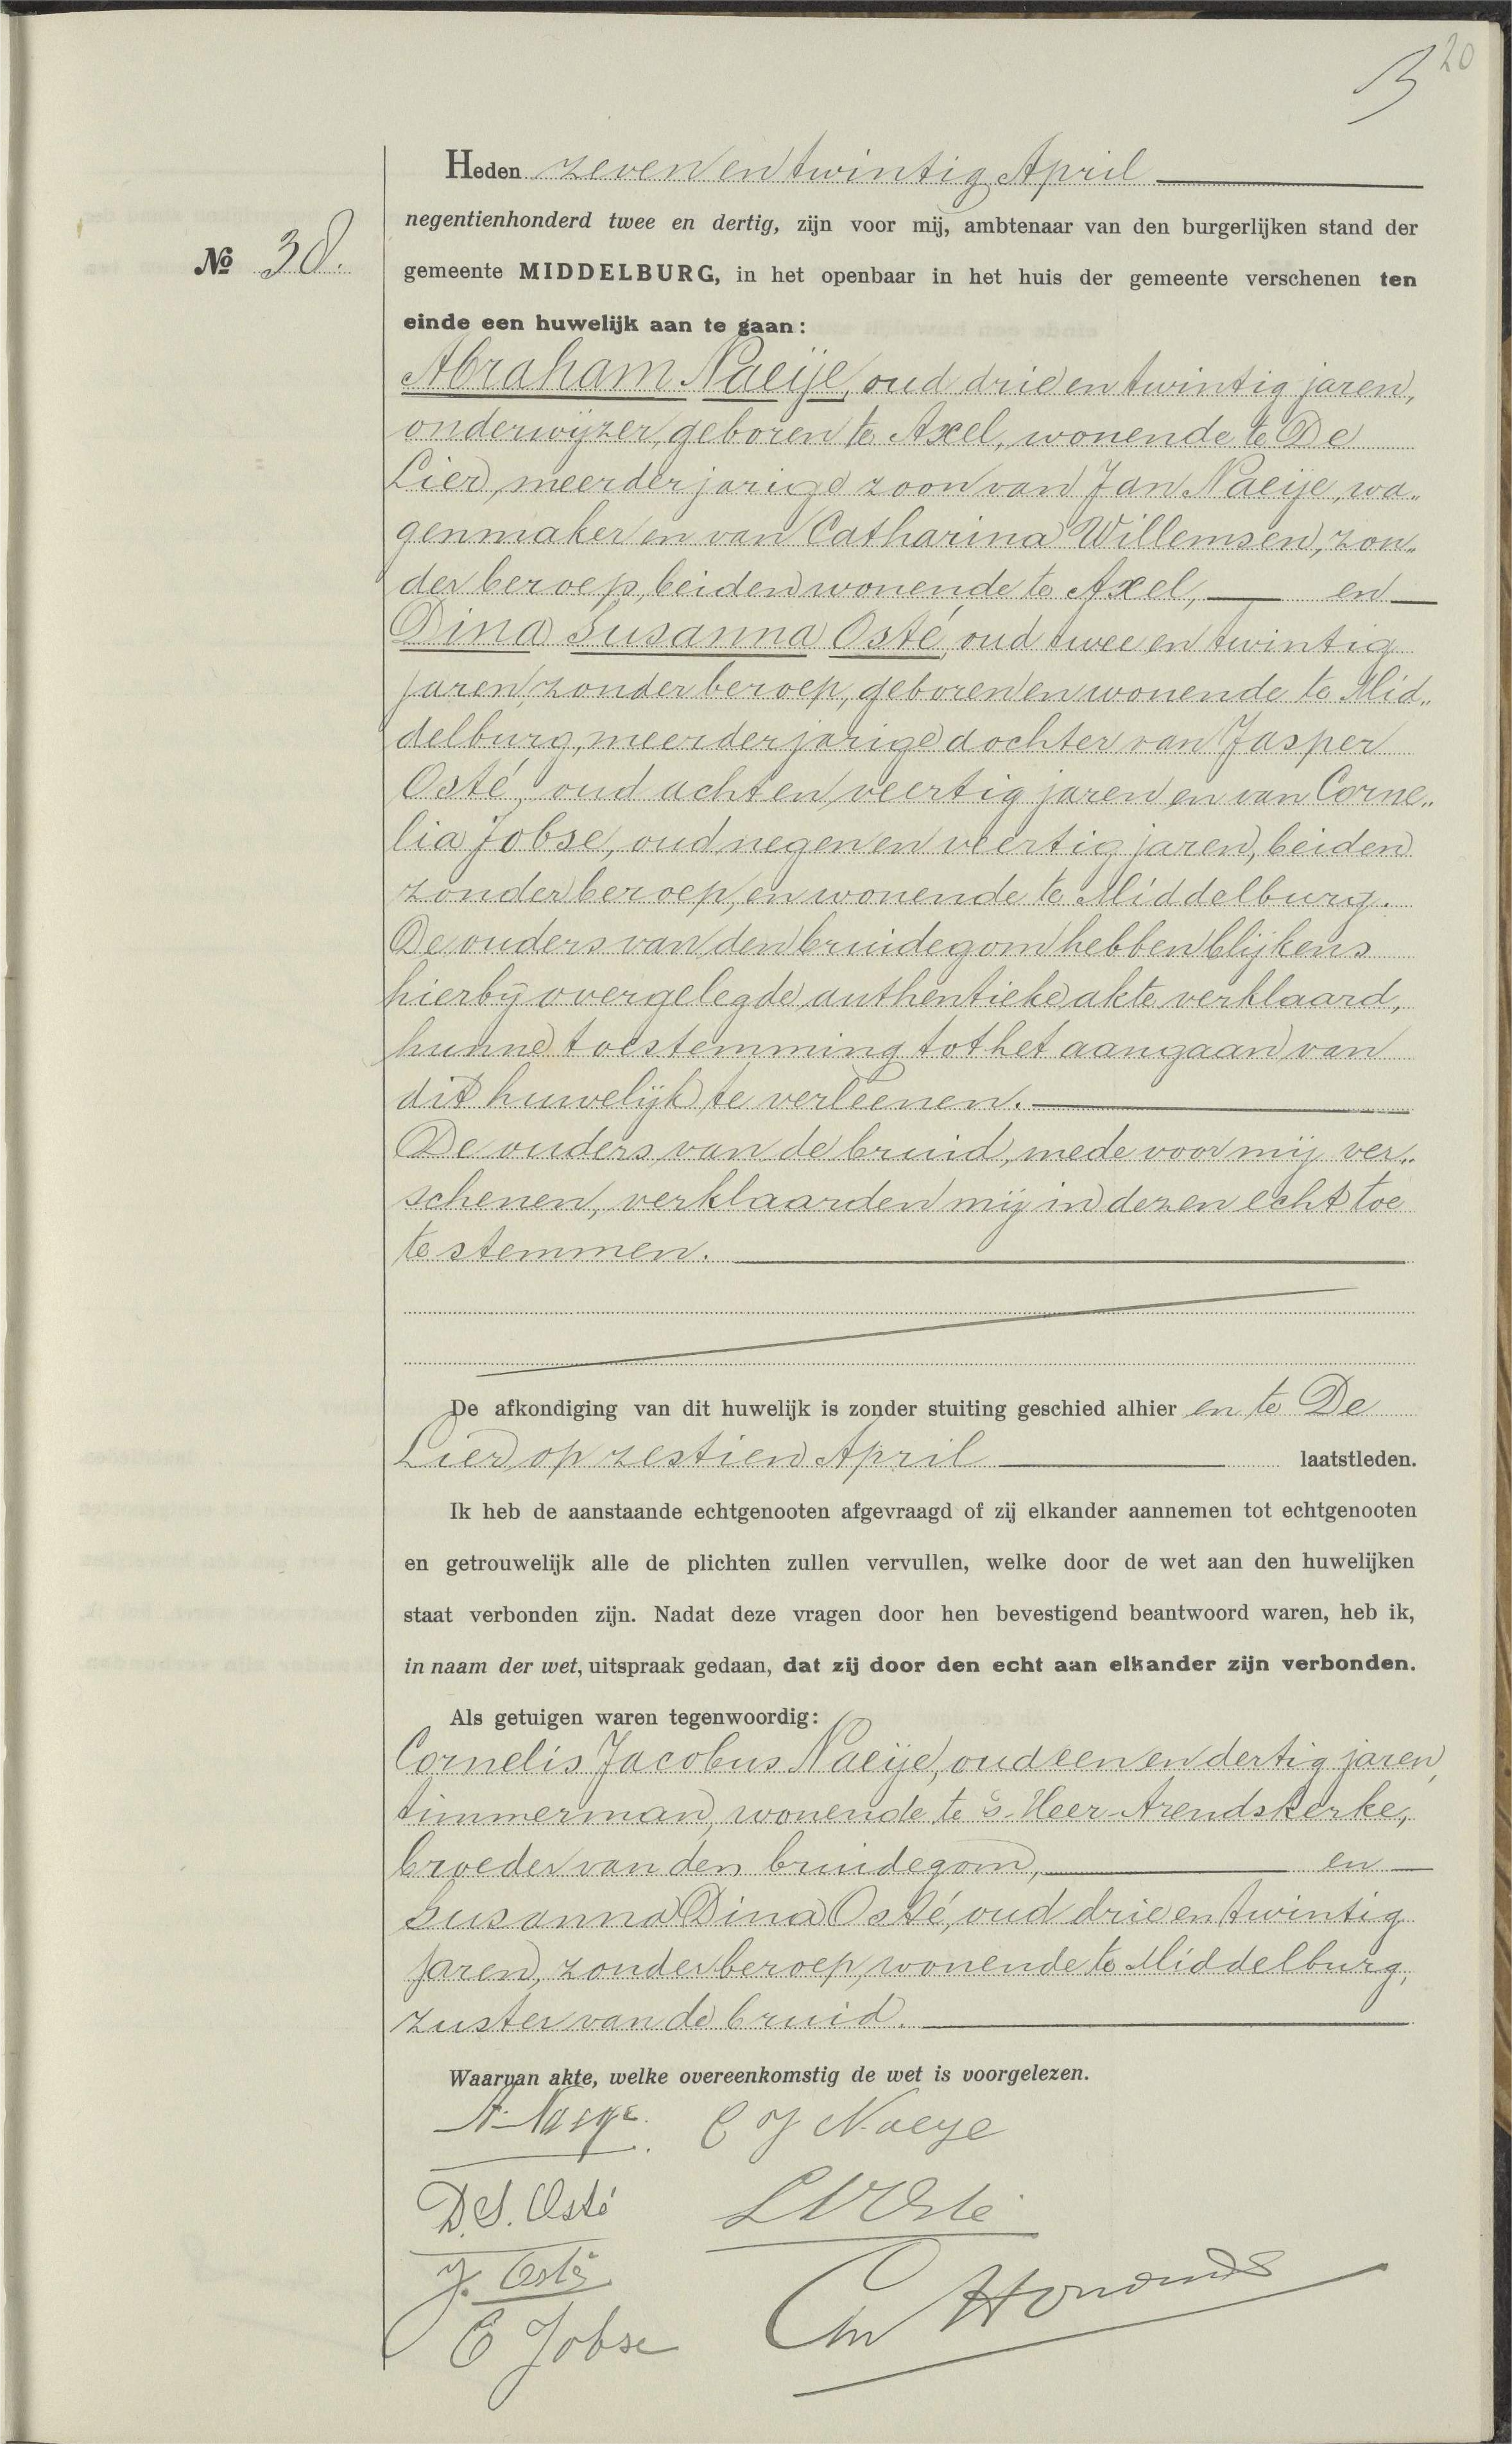 20
Heden zeven en twintig April
negentienhonderd twee en dertig, zijn voor mij, ambtenaar van den burgerlijken stand der
No 38.
gemeente MIDDELBURG, in het openbaar in het huis der gemeente verschenen ten
einde een huwelijk aan te gaan:
Abraham Naeije, oud drie en twintig jaren,
onderwijzer, geboren te Axel, wonende te De
Lier, meerderjarige zoon van Jan Naeije, wa„
genmaker en van Catharina Willemsen, zon„
der beroep, beiden wonende te Axel, en
Dina Susanna Osté, oud twee en twintig
jaren, zonder beroep, geboren en wonende te Mid„
delburg, meerderjarige dochter van Jasper
Osté, oud acht en veertig jaren en van Corne„
lia Jobse, oud negen en veertig jaren, beiden
zonder beroep, en wonende te Middelburg.
De ouders van den bruidegom hebben blijkens
hierbij overgelegde authentieke akte verklaard,
hunne toestemming tot het aangaan van
dit huwelijk te verleenen.
De ouders van de bruid, mede voor mij ver„
schenen, verklaarden mij in dezen echt toe
te stemmen.
De afkondiging van dit huwelijk is zonder stuiting geschied alhier en te De
Lier op zestien April laatstleden.
Ik heb de aanstaande echtgenooten afgevraagd of zij elkander aannemen tot echtgenooten
en getrouwelijk alle de plichten zullen vervullen, welke door de wet aan den huwelijken
staat verbonden zijn. Nadat deze vragen door hen bevestigend beantwoord waren, heb ik,
in naam der wet, uitspraak gedaan, dat zij door den echt aan elkander zijn verbonden.
Als getuigen waren tegenwoordig:
Cornelis Jacobus Naeije, oud een en dertig jaren,
timmerman, wonende te 's-Heer-Arendskerke,
broeder van den bruidegom, en
Susanna Dina Osté, oud drie en twintig
jaren, zonder beroep, wonende te Middelburg,
zuster van de bruid.
Waarvan akte, welke overeenkomstig de wet is voorgelezen.
A. Naeye. C J Naeye
D.S. Osté Osté
J. Osté
C Jobse